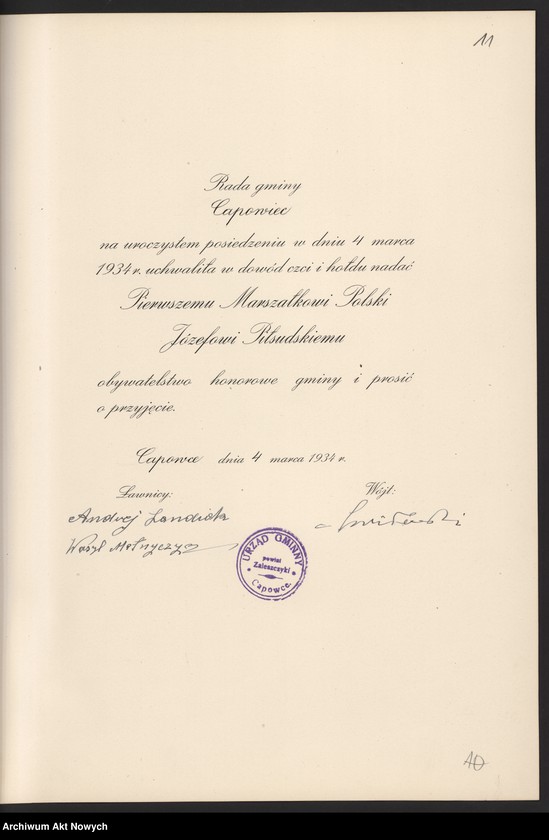 11
Rada gminy
Capowiec
na uroczystem posiedzeniu w dniu 4 marca
1934 r. uchwaliła w dowód czci i hołdu nadać
Pierwszemu Marszałkowi Polski
Józefowi Piłsudskiemu
obywatelstwo honorowe gminy i prosić
o przyjęcie.
Capowce dnia 4 marca 1934 r.
Ławnicy: Wójt:
Andrej
Wasyl Melnyczyn
URZĄD GMINNY
powiat
Zaleszczyki
Capowce.
10
Archiwum Akt Nowych